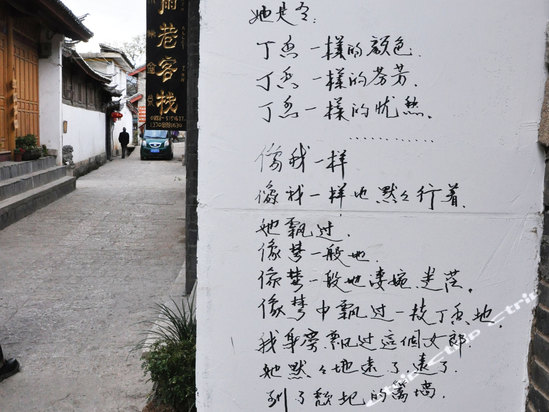 雨巷客栈
她是有
丁香一樣的颜色
丁香一樣的芬芳
丁香一樣的忧愁
…………
像我一样
像我一样地默々行着
她飘过
像梦一般地
像梦一般地凄婉迷茫。
像梦中飘过一枝丁香地
我身旁飘过這個女郎
她默々地远了远了
到了颓圮的篱墙